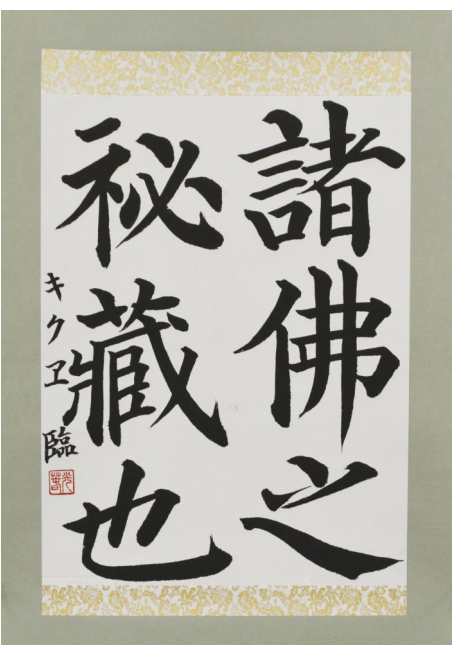 諸佛之
祕藏也
キクヱ臨